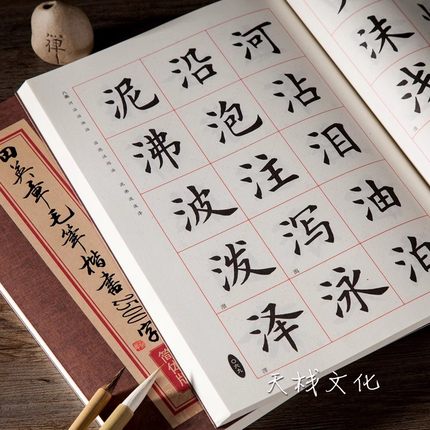 禪
沫浅
河沾泪油泊
沿泡注泻泳
泥沸波泼泽
田英章毛筆楷書2500字
简体版
天栈文化